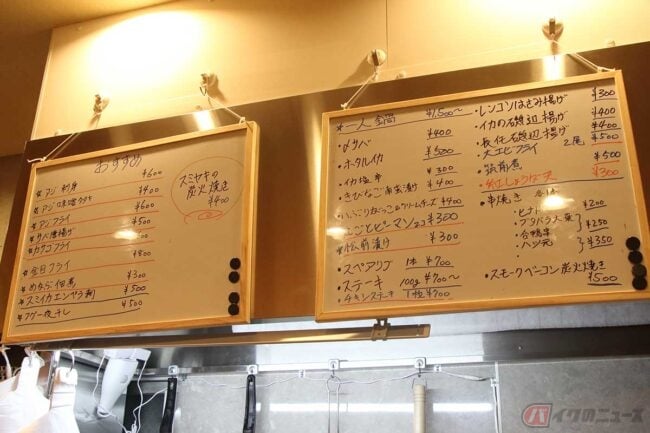 おすすめ
☆アジ刺身 ¥600
☆アジ味噌タタキ ¥400
☆アジフライ ¥600
☆サバ唐揚げ ¥500
☆カサゴフライ ¥600
☆金目フライ ¥800
☆めぢら佃煮 ¥300
☆スミイカエンペラ刺 ¥500
☆フグ一夜干し ¥500
スミヤキの
炭火焼き
¥400
☆一人鍋 ¥1,500〜
・〆サバ ¥400
・ホタルイカ ¥500
・イカ塩辛 ¥300
・きびなご南蛮漬け ¥400
・いぶりがっこのクリームチーズ ¥400
・しごとピーマン ¥300
☆松前漬け ¥300
・スペアリブ 1本 ¥700
・ステーキ 100g ¥700〜
・チキンステーキ 1枚 ¥700
・レンコンはさみ揚げ ¥300
・イカの磯辺揚げ ¥400
・長芋磯辺揚げ ¥400
・大エビフライ 2尾 ¥500
・筑前煮 ¥500
・紅しょうが天 ¥300
・串焼き 各1本
・ヒナ ¥200
・ブタバラ大葉 ¥250
・合鴨串
・ハツ元 ¥350
・スモークベーコン炭火焼き
¥500
バイクのニュース